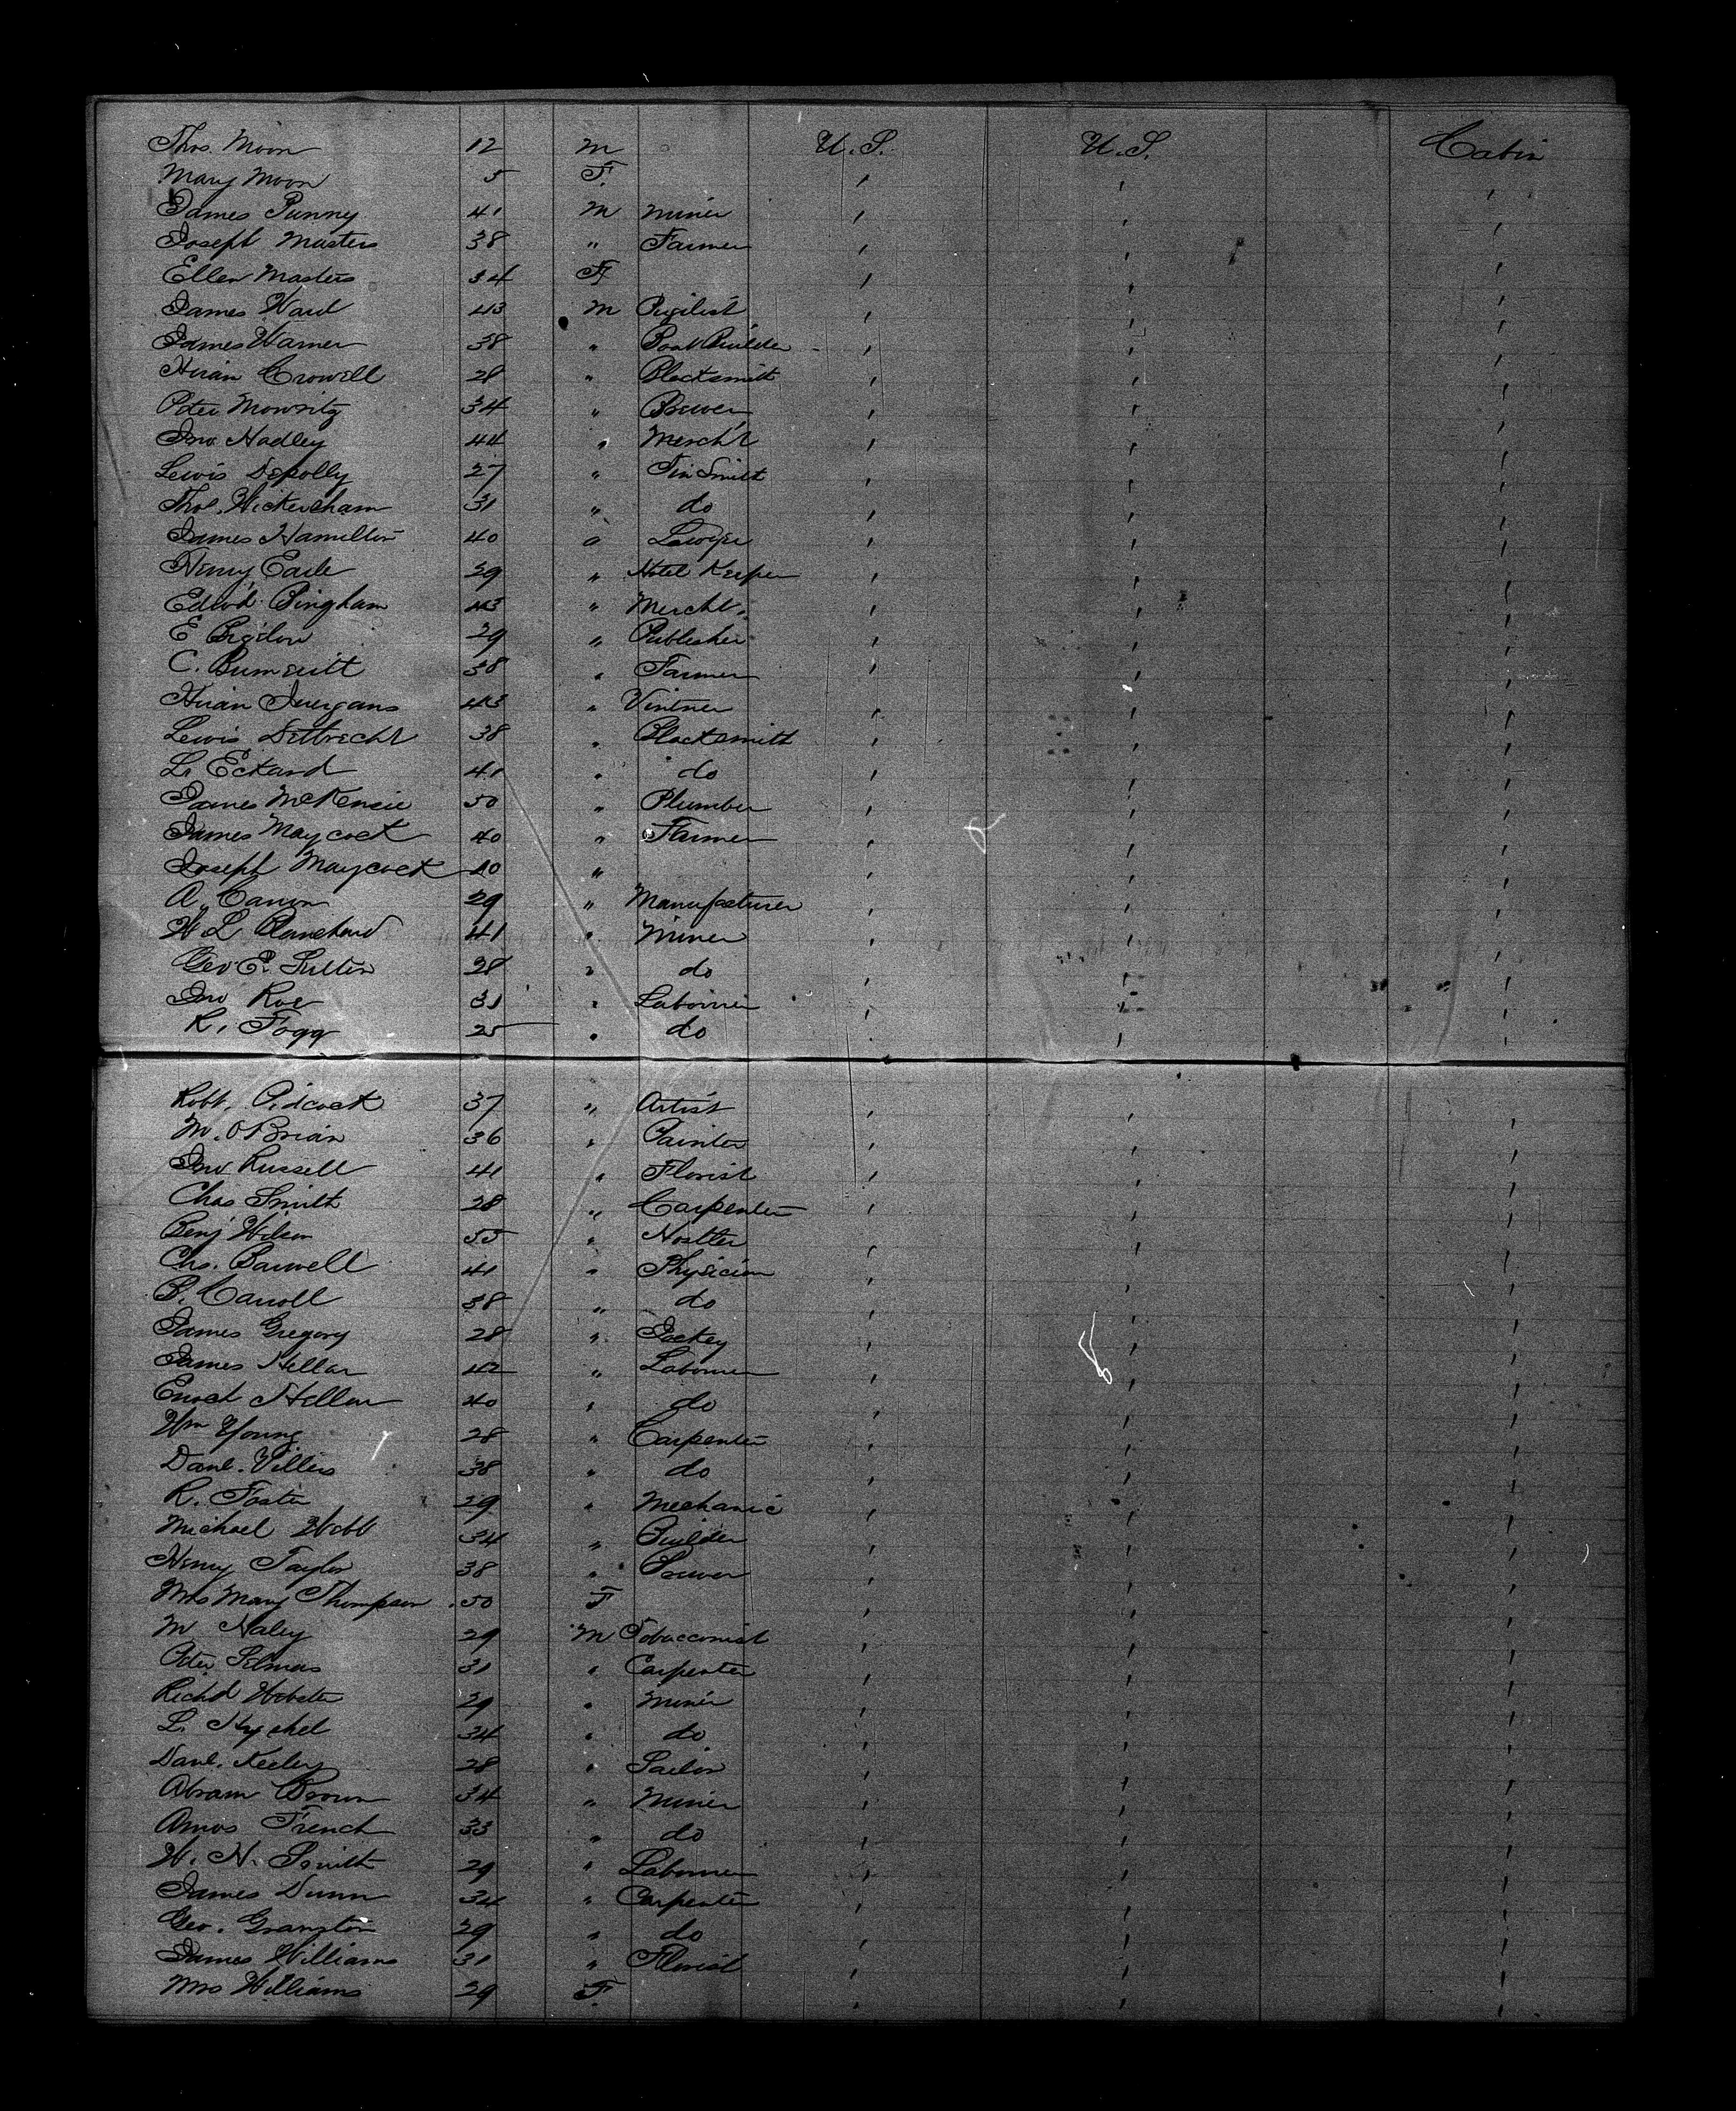 Thos. Moon 12 M U.S. U.S. Cabin
Mary Moon 5 F. " " "
James Punny 41 M Miner " " "
Joseph Masters 38 " Farmer " " "
Ellen Masters 34 F " " "
James Ward 43 M Pugilist " " "
James Warner 38 " Boat Builder " " "
Hiran Crowell 28 " Blacksmith " " "
Peter 34 " Brewer " " "
Jno Hadley 44 " Merch't " " "
Lewis Depolly 27 " Tin Smith " " "
Thos. Wickersham 31 " do " " "
James Hamilton 40 " Lawyer " " "
Henry Earle 29 " Hotel Keeper " " "
Edwd. Bingham 43 " Mercht. " " "
E Bigelow 29 " Publisher " " "
C. 38 " Farmer " " "
Hiran Juergans 43 " Vintner " " "
Lewis Delbrecht 38 " Blacksmith " " "
L. Eckard 41 " do " " "
James McKensie 50 " Plumber " " "
James Maycock 40 " Farmer " " "
Joseph Maycock 40 " " " "
A. Canon 29 " Manufacturer " " "
W. L Blanchard 41 " Miner " " "
Geo E. Sulton 28 " do " " "
Jno Roe 31 " Laborer " " "
R. Fogg 25 " do " " "
Robt. Pidcock 37 " Artist " " "
M. O'Brian 36 " Painter " " "
Jno Russell 41 " Florist " " "
Chas Smith 28 " Carpenter " " "
Benj Wilson 55 " Hostler " " "
Chs. Barwell 41 " Physician " " "
B. Carroll 38 " do " " "
James Gregory 28 " Jockey " " "
James Hellar 42 " Laborer " " "
Enoch Hellar 40 " do " " "
Wm Young 28 " Carpenter " " "
Danl. Villers 38 " do " " "
R. Foster 29 " Mechanic " " "
Michael Webb 34 " Builder " " "
Henry Taylor 38 " Brewer " " "
Mrs Mary Thompson 50 F " " "
M Haley 29 M Tobacconist " " "
Peter Selmas 31 " Carpenter " " "
Richd Webster 29 " Miner " " "
L. Hychel 34 " do " " "
Danl. Keeley 28 " Sailor " " "
Abram Brown 34 " Miner " " "
Amos French 33 " do " " "
W. H. Smith 29 " Laborer " " "
James Dunn 34 " Carpenter " " "
Geo. Granston 29 " do " " "
James Williams 31 " Florist " " "
Mrs Williams 29 F. " " "